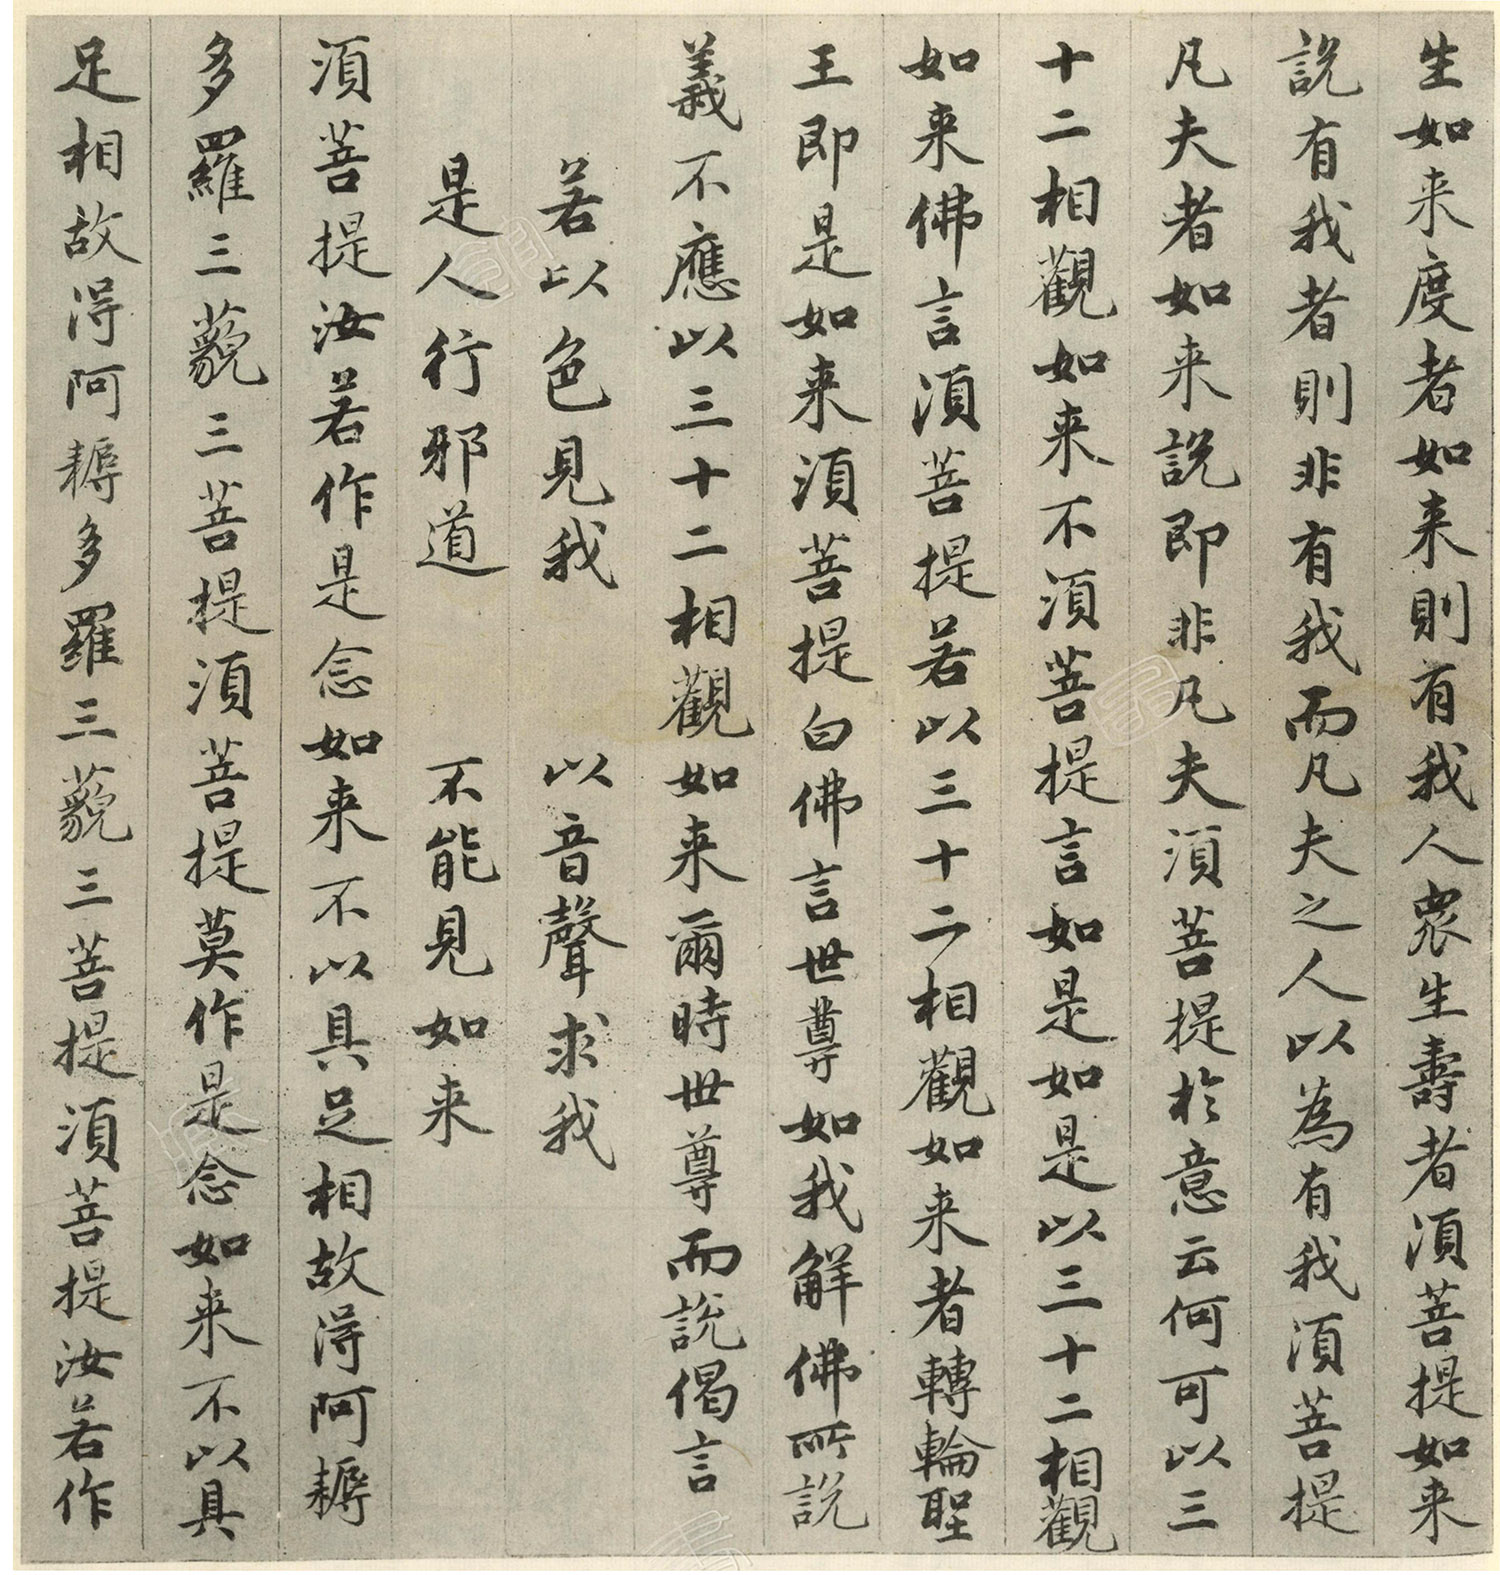 生如来度者如来則有我人衆生壽者須菩提如来
說有我者則非有我而凡夫之人以為有我須菩提
凡夫者如来說即非凡夫須菩提於意云何可以三
十二相觀如来不須菩提言如是如是以三十二相觀
如来佛言須菩提若以三十二相觀如来者轉輪聖
王即是如来須菩提白佛言世尊如我解佛所說
義不應以三十二相觀如来爾時世尊而說偈言
若以色見我 以音聲求我
是人行邪道 不能見如来
須菩提汝若作是念如来不以具足相故得阿耨
多羅三藐三菩提須菩提莫作是念如来不以具
足相故得阿耨多羅三藐三菩提須菩提汝若作